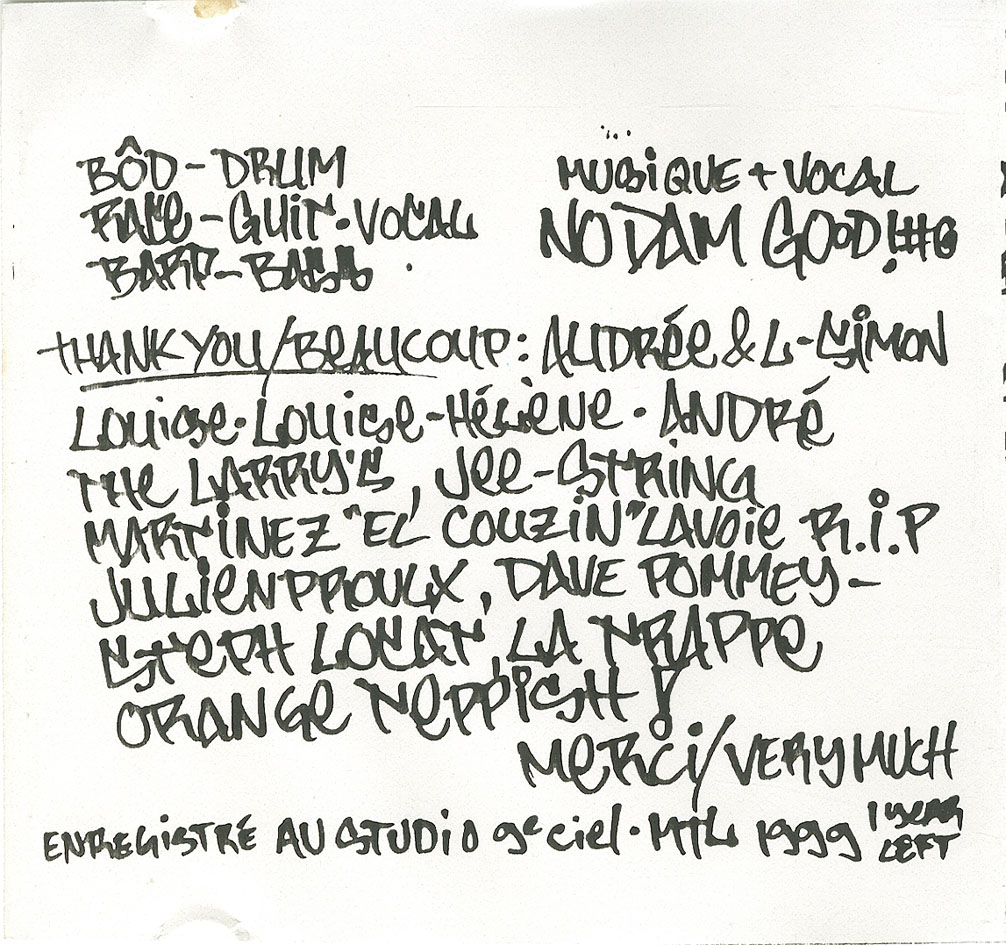 BÔD - DRUM
RACE - GUIT. VOCAL
BART - BASS
MUSIQUE + VOCAL
NO DAM GOOD!#@
THANK YOU/BEAUCOUP: AUDRÉE & L-SIMON
LOUISE. LOUISE-HÉLÈNE. ANDRÉ
THE LARRY'S, JEE-STRING
MARTINEZ "EL COUZIN" LAVOIE R.I.P
JULIEN PROULX, DAVE POMMEY -
STEPH LOCAT, LA TRAPPE
ORANGE
MERCI/VERY MUCH
ENREGISTRÉ AU STUDIO 9e CIEL. MTL 1999 1 YEAR LEFT